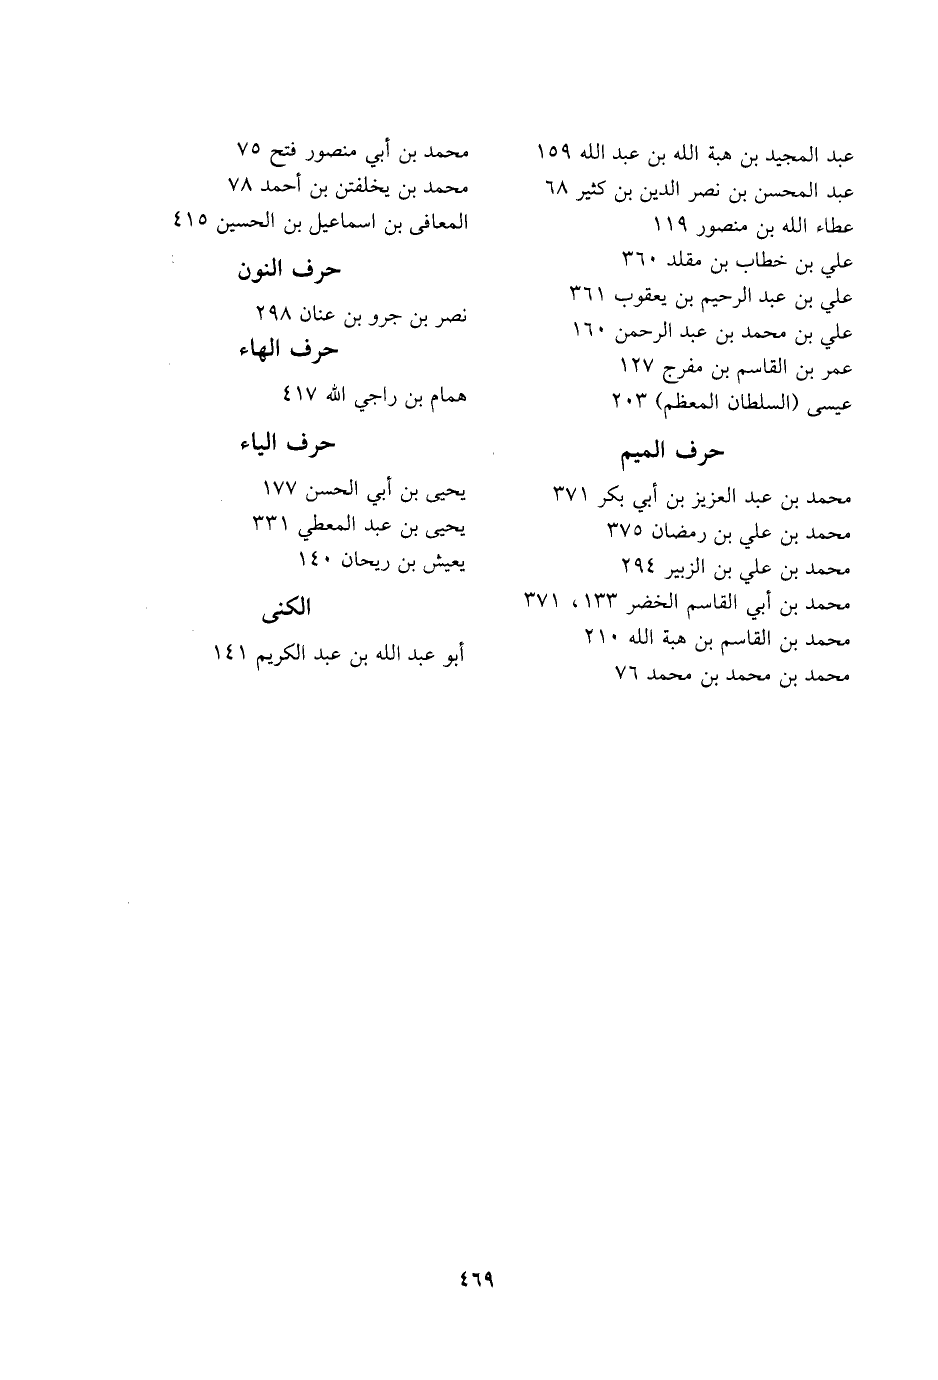 عبد المجيد بن هبة الله بن عبد الله ١٥٩
عبد المحسن بن نصر الدين بن كثير ٦٨
عطاء الله بن منصور ١١٩
علي بن خطاب بن مقلد ٣٦٠
علي بن عبد الرحيم بن يعقوب ٣٦١
علي بن محمد بن عبد الرحمن ١٦٠
عمر بن القاسم بن مفرج ١٢٧
عيسى (السلطان المعظم) ٢٠٣
حرف الميم
محمد بن عبد العزيز بن أبي بكر ٣٧١
محمد بن علي بن رمضان ٣٧٥
محمد بن علي بن الزبير ٢٩٤
محمد بن أبي القاسم الخضر ١٣٣ ، ٣٧١
محمد بن القاسم بن هبة الله ٢١٠
محمد بن محمد بن محمد ٧٦
محمد بن أبي منصور فتح ٧٥
محمد بن يخلفتن بن أحمد ٧٨
المعافى بن اسماعيل بن الحسين ٤١٥
حرف النون
نصر بن جرو بن عنان ٢٩٨
حرف الهاء
همام بن راجي الله ٤١٧
حرف الياء
يحيى بن أبي الحسن ١٧٧
يحيى بن عبد المعطي ٣٣١
يعيش بن ريحان ١٤٠
الكنى
أبو عبد الله بن عبد الكريم ١٤١
٤٦٩